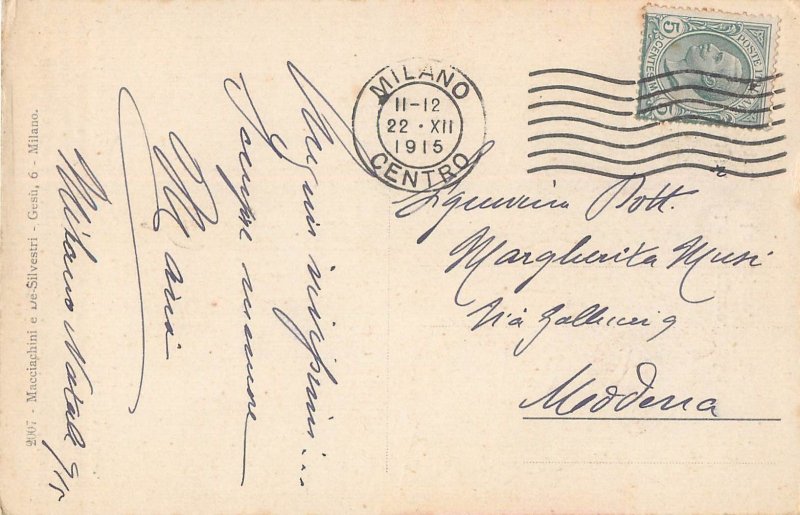 2007 - Macciachini e De-Silvestri - Gesù, 6 - Milano.
Milano Natale 915
Auguri vivissimi...
sempre memore
MILANO
11-12
22 · XII
1915
CENTRO
POSTE ITALIANE
5 CENTESIMI 5
Signorina Dott.
Margherita Musi
Via Gallucci 9
Modena